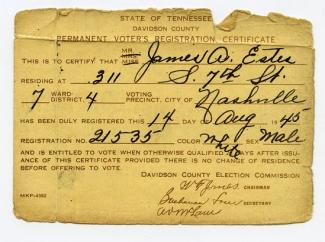 STATE OF TENNESSEE
DAVIDSON COUNTY
PERMANENT VOTER'S REGISTRATION CERTIFICATE
THIS IS TO CERTIFY THAT MR. MRS. MISS James A. Estes
RESIDING AT 311 S. 7th St.
7 WARD- DISTRICT. 4 VOTING PRECINCT, CITY OF Nashville
HAS BEEN DULY REGISTERED THIS 14 DAY Aug 1945
REGISTRATION NO. 21535 COLOR White SEX Male
AND IS ENTITLED TO VOTE WHEN OTHERWISE QUALIFIED DAYS AFTER ISSU-
ANCE OF THIS CERTIFICATE PROVIDED THERE IS NO CHANGE OF RESIDENCE
BEFORE OFFERING TO VOTE.
DAVIDSON COUNTY ELECTION COMMISSION
CHAIRMAN
SECRETARY